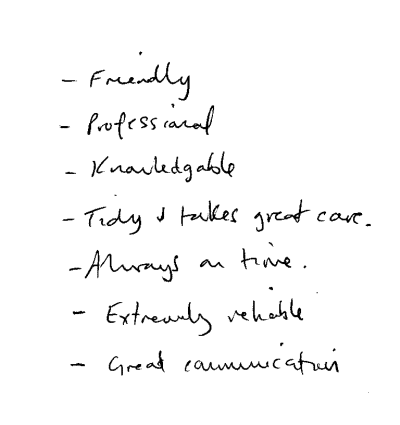 - Friendly
- Professional
- Knowledgable
- Tidy & takes great care.
- Always on time.
- Extremely reliable
- Great communication